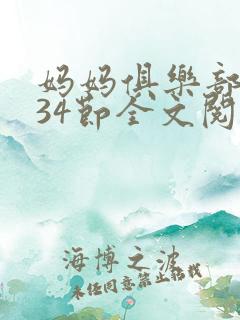 妈妈俱樂部
34節全文閱
海博之波
未经同意禁止转载